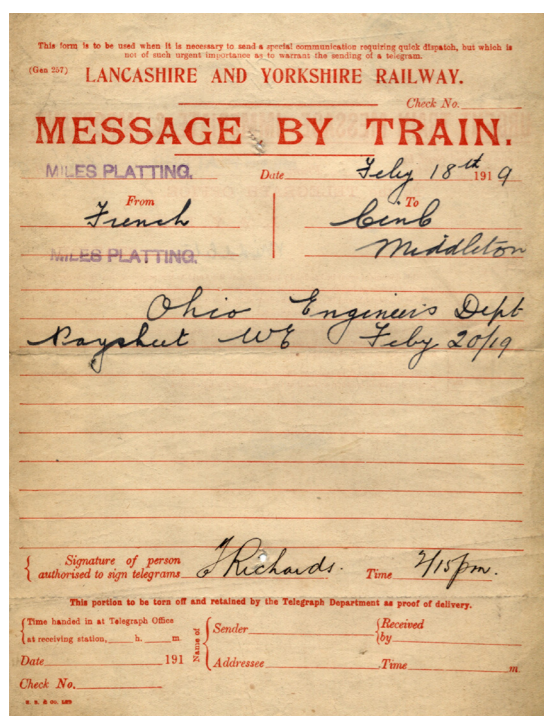 This form is to be used when it is necessary to send a special communication requiring quick dispatch, but which is
not of such urgent importance as to warrant the sending of a telegram.
(Gen 257) LANCASHIRE AND YORKSHIRE RAILWAY.
Check No.
MESSAGE BY TRAIN.
MILES PLATTING. Date Feby 18th 1919
From To
French
Middleton
MILES PLATTING.
Ohio Engineers Dept
Paysheet WE Feby 20/19
Signature of person
authorised to sign telegrams Richards. Time 2/15pm.
This portion to be torn off and retained by the Telegraph Department as proof of delivery.
Time handed in at Telegraph Office
at receiving station, h. m.
Name of
Sender
Received
by
Date 191
Addressee Time m.
Check No.